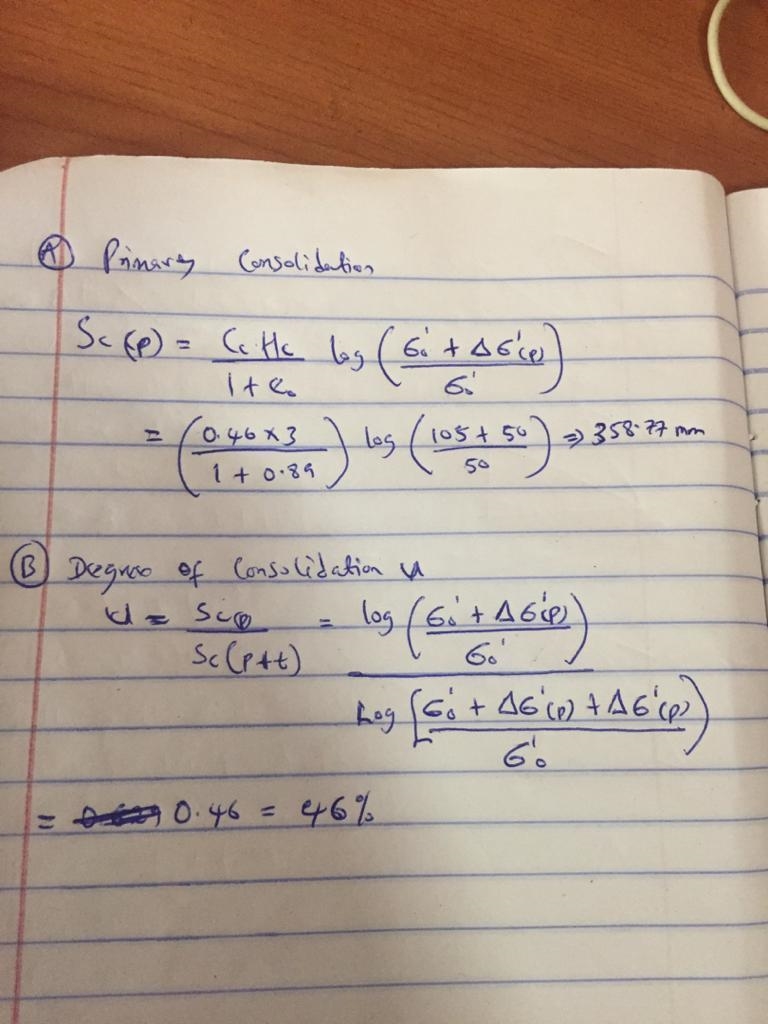 Ⓐ Primary Consolidation
Sc(p) = Cc Hc / 1 + e₀ log (σ₀' + Δσ'(p) / σ₀')
= (0.46 × 3 / 1 + 0.89) log (105 + 50 / 50) ⇒ 358.77 mm
Ⓑ Degree of Consolidation U
U = Sc(p) / Sc(p+t) = log (σ₀' + Δσ'(p) / σ₀') / Log [σ₀' + Δσ'(p) + Δσ'(p) / σ₀')
= 0.46 = 46%